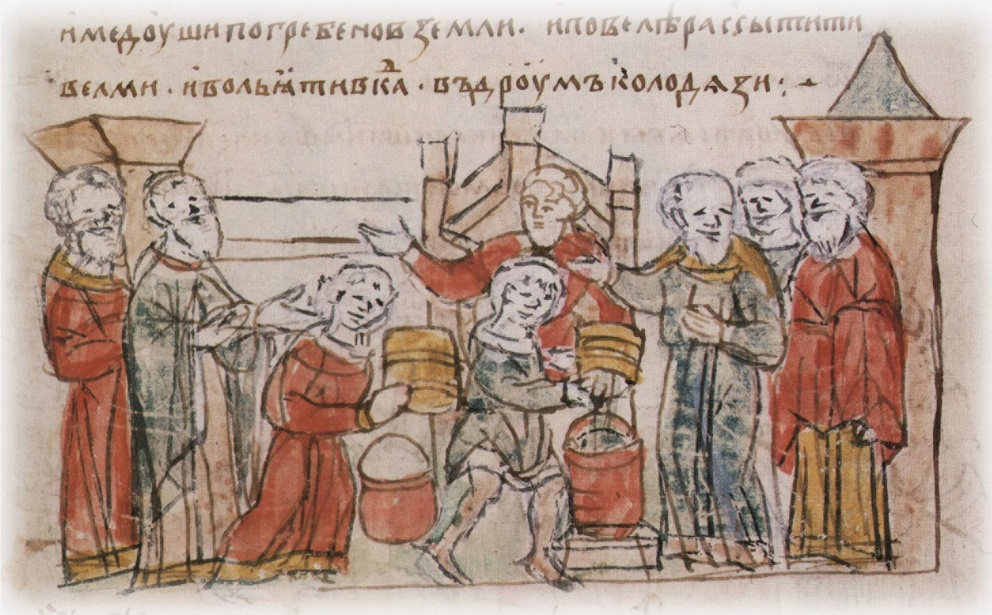 имедоушипогребеновземли · иповелѣрассытити
велми · ивольꙗтивкⷣа · въдроумъколодѧзи :~